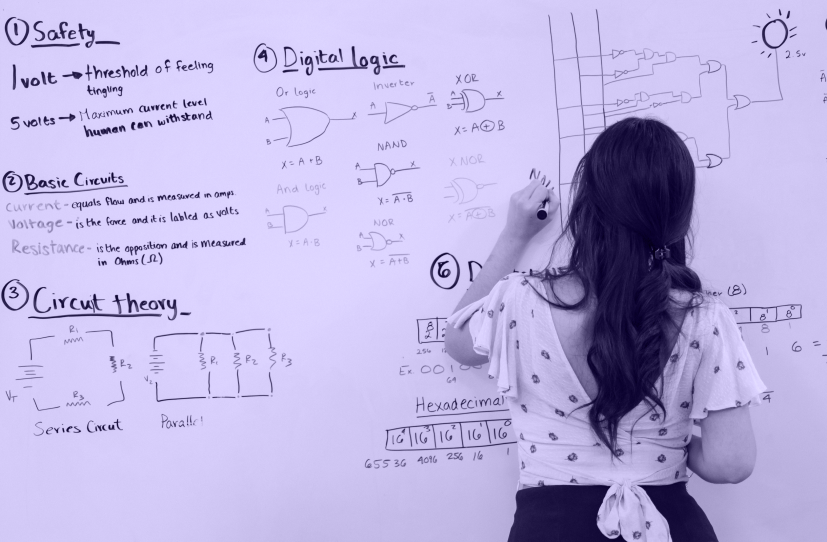 ① Safety
1 volt → threshold of feeling
tingling
5 volts → Maximum current level
human can withstand
② Basic Circuits
Current - equals flow and is measured in amps
Voltage - is the force and it is labled as volts
Resistance - is the opposition and is measured
in Ohms (Ω)
③ Circut theory
R₁
R₂
R₃
V_T
Series Circut
R₁
R₂
R₃
Parallel
④ Digital logic
Or logic
A
B
X
X = A + B
And logic
X = A·B
Inverter
A
A̅
NAND
A
B
X
X = A̅·̅B̅
NOR
A
B
X
X = A̅+̅B̅
XOR
A
B
X
X = A⊕B
X NOR
X = A̅⊕̅B̅
2.5v
(8)
8¹ 8⁰
8 1
1 6 =
4
256
Ex 001
64
Hexadecimal
16⁴ 16³ 16² 16¹ 16⁰
65536 4096 256 16 1